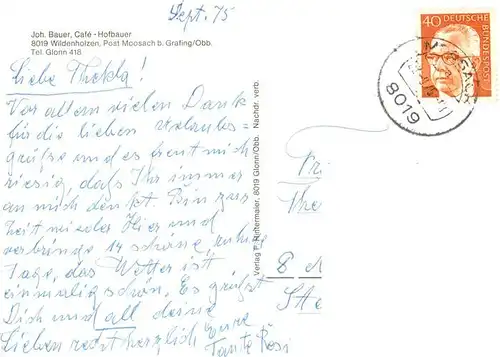 Sept. 75
Joh. Bauer, Café - Hofbauer
8019 Wildenholzen, Post Moosach b. Grafing/Obb.
Tel. Glonn 418
Liebe Thekla!
Vor allem vielen Dank
für die lieben Urlaubs=
grüße und es freut mich
riesig, daß Ihr immer
an mich denkt. Bin zur
Zeit wieder hier und
verbringe 14 schöne, ruhige
Tage, das Wetter ist
einmalig schön. Es grüßt
Dich und all deine
Lieben recht herzlich eure
Tante Resi
Verlag F. Rittermaier, 8019 Glonn/Obb. Nachdr. verb.
40
DEUTSCHE
BUNDESPOST
MOOSACH
8019
8